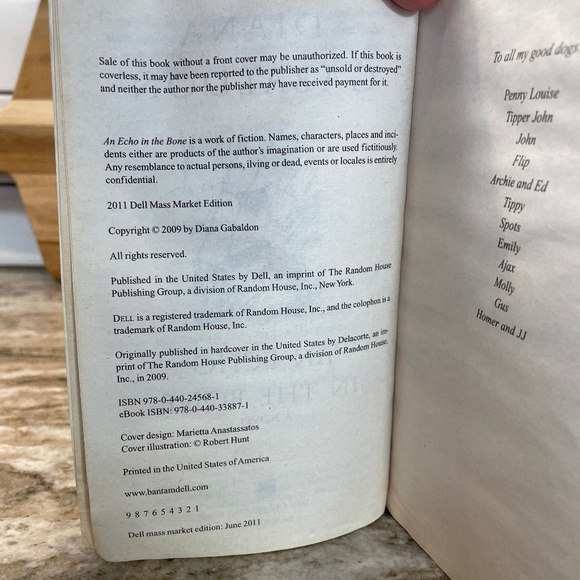 Sale of this book without a front cover may be unauthorized. If this book is
coverless, it may have been reported to the publisher as “unsold or destroyed”
and neither the author nor the publisher may have received payment for it.
An Echo in the Bone is a work of fiction. Names, characters, places and inci-
dents either are products of the author's imagination or are used fictitiously.
Any resemblance to actual persons, ilving or dead, events or locales is entirely
confidential.
2011 Dell Mass Market Edition
Copyright © 2009 by Diana Gabaldon
All rights reserved.
Published in the United States by Dell, an imprint of The Random House
Publishing Group, a division of Random House, Inc., New York.
DELL is a registered trademark of Random House, Inc., and the colophon is a
trademark of Random House, Inc.
Originally published in hardcover in the United States by Delacorte, an im-
print of The Random House Publishing Group, a division of Random House,
Inc., in 2009.
ISBN 978-0-440-24568-1
eBook ISBN: 978-0-440-33887-1
Cover design: Marietta Anastassatos
Cover illustration: © Robert Hunt
Printed in the United States of America
www.bantamdell.com
9 8 7 6 5 4 3 2 1
Dell mass market edition: June 2011
To all my good dogs
Penny Louise
Tipper John
John
Flip
Archie and Ed
Tippy
Spots
Emily
Ajax
Molly
Gus
Homer and JJ